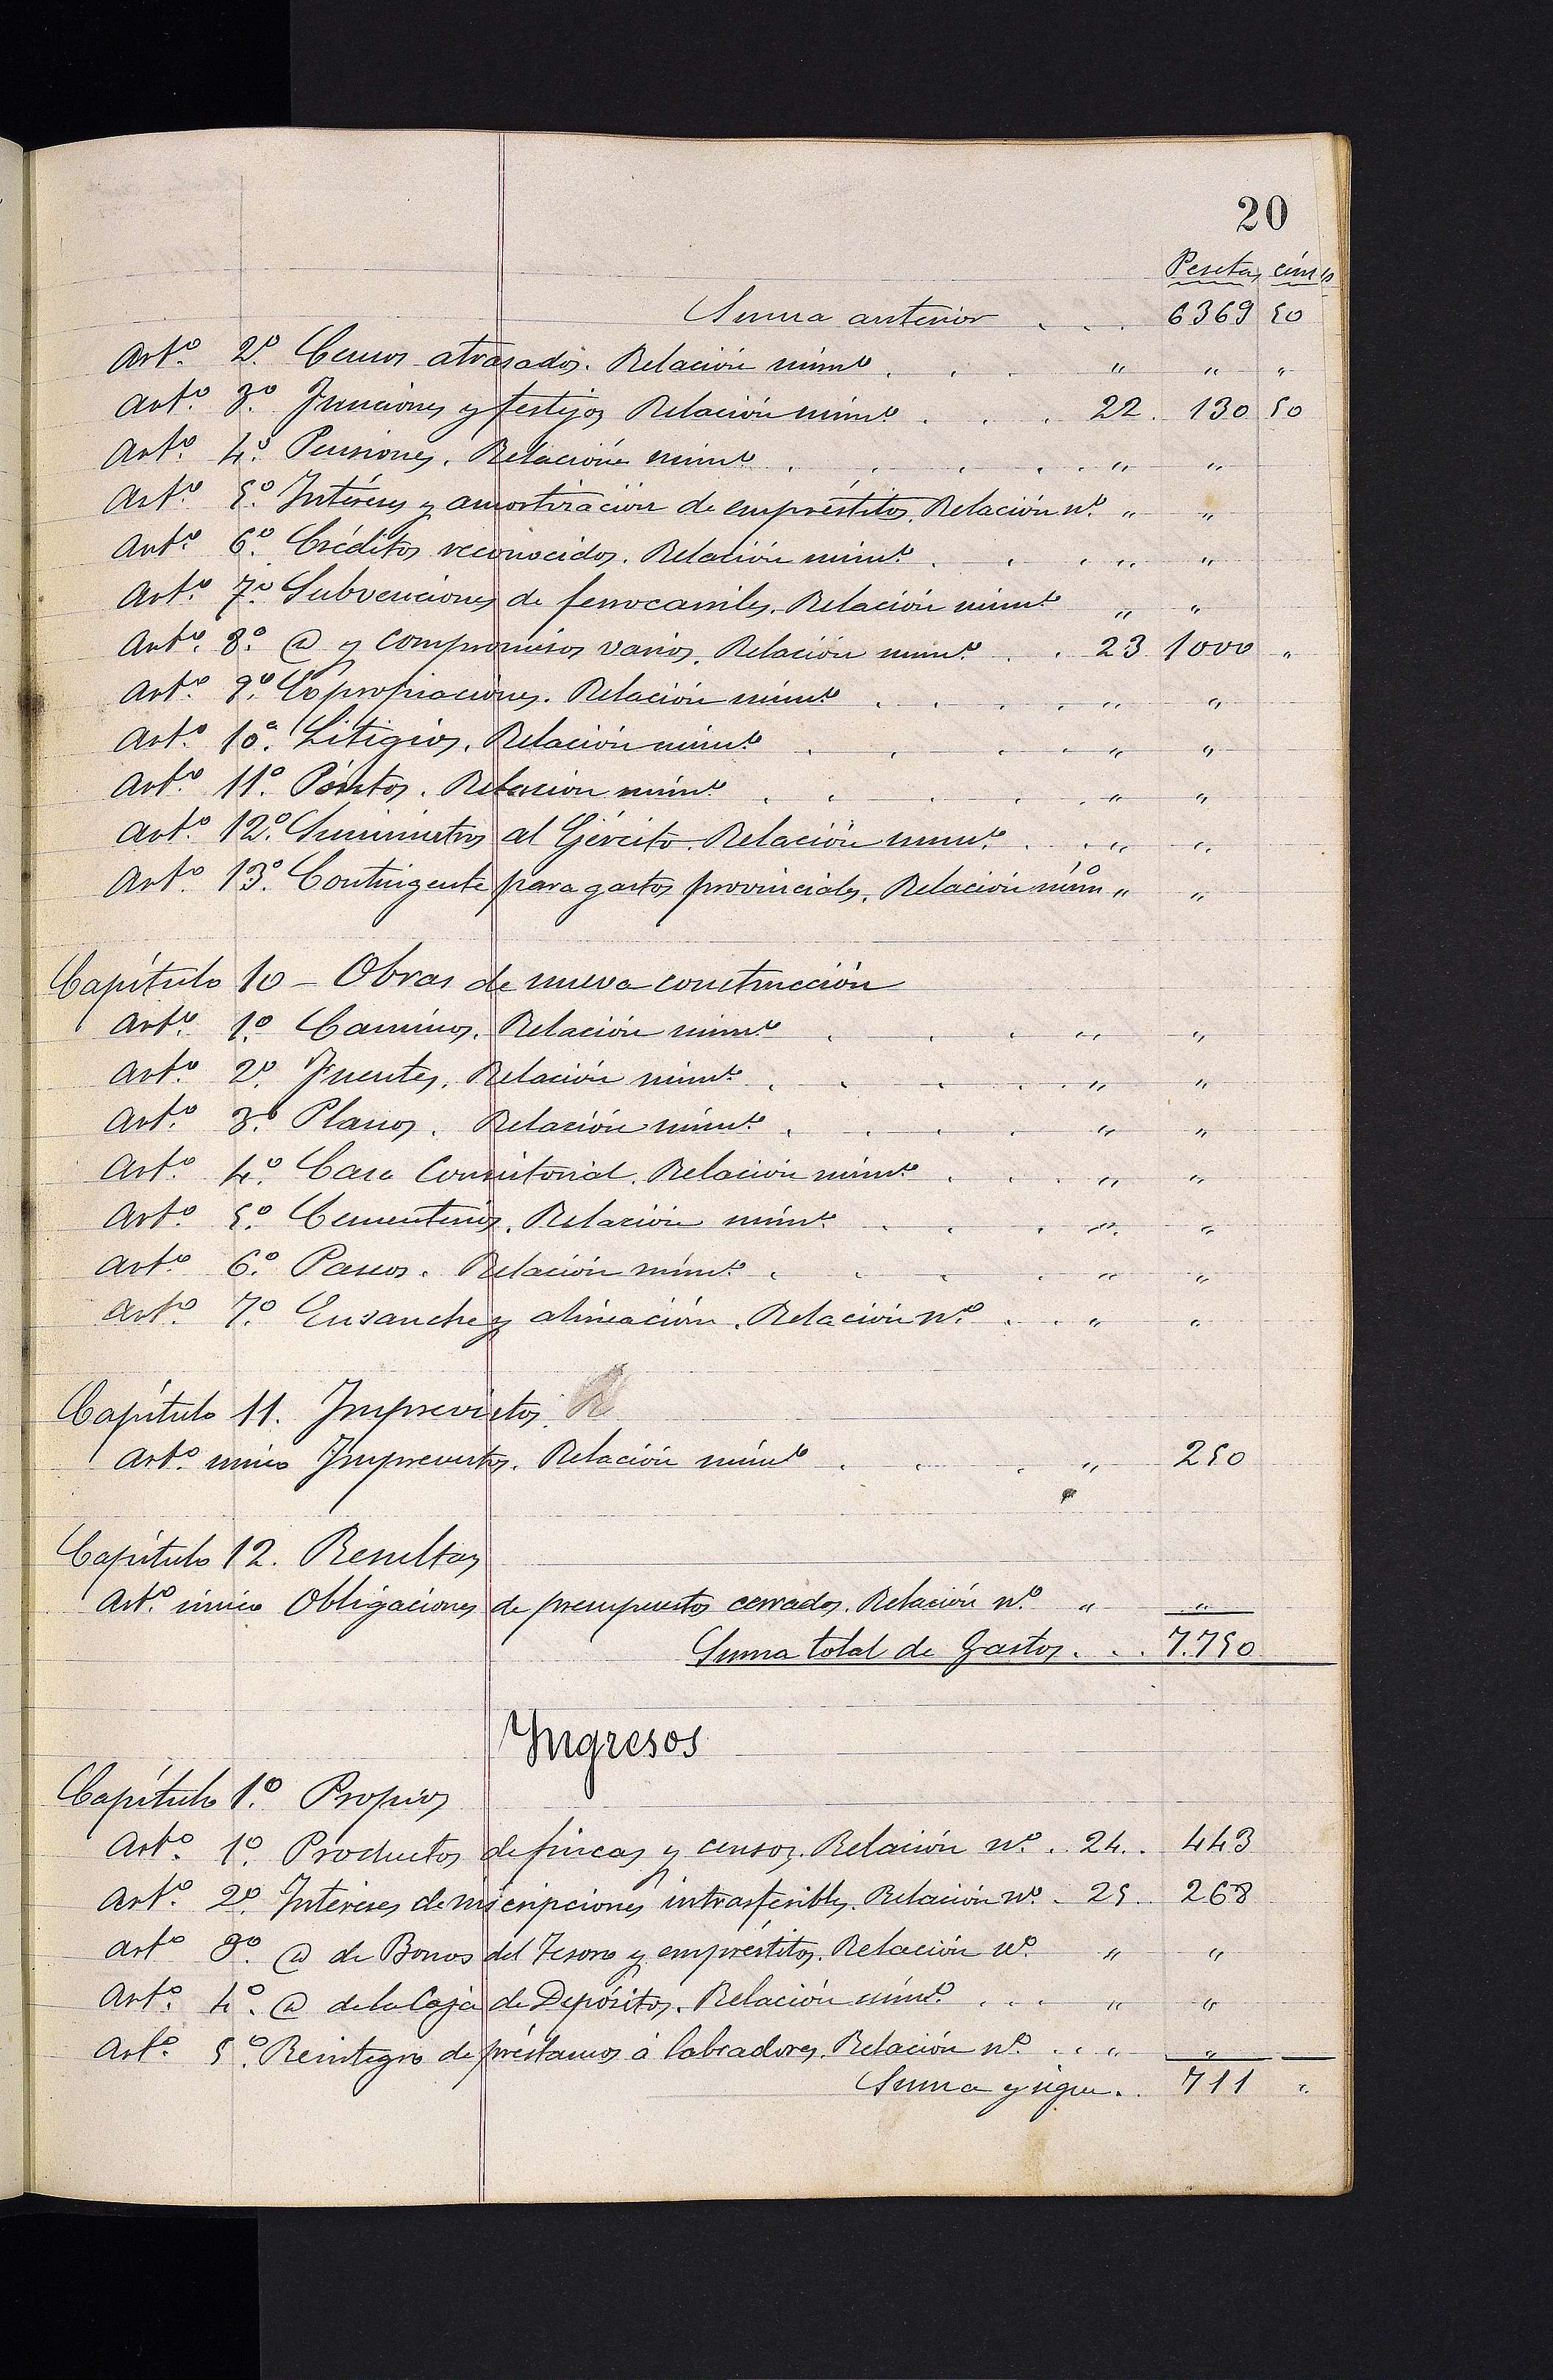 20
Pesetas cénts
Suma anterior . . . 6369 50
Artº. 2º. Censos atrasados. Relación númº . . . " " "
Artº. 3º. Funciones y festejos Relación númº. . . . 22. 130 50
Artº. 4º. Pensiones. Relación númº . . . . . " "
Artº. 5º. Intéreses y amortización de empréstitos. Relación nº. " "
Artº. 6º. Créditos reconocidos. Relación númº. . . . " "
Artº. 7º. Subvenciones de ferrocarriles. Relación númº " "
Artº. 8º. @ y compromisos varios. Relación númº. . . 23 1000 "
Artº. 9º. Expropiaciones. Relación númº . . . . " "
Artº. 10º. Litigios. Relación númº . . . . " "
Artº. 11º. Pósitos. Relación númº . . . . . " "
Artº. 12º. Suministros al Ejército. Relación númº. . . " "
Artº. 13º. Contingente para gastos provinciales. Relación númº " "
Capítulo 10 - Obras de nueva construcción
Artº. 1º. Caminos. Relación númº . . . " "
Artº. 2º. Fuentes. Relación númº . . . . . " "
Artº. 3º. Planos. Relación númº. . . . . " "
Artº. 4º. Casa Consistorial. Relación númº . . . " "
Artº. 5º. Cementerios. Relación númº. . . . " "
Artº. 6º. Paseos. Relación númº. . . . . " "
Artº. 7º. Ensanche y alineación. Relación nº. . . " "
Capítulo 11. Imprevistos.
Artº. único Imprevistos. Relación númº . . . " 250
Capítulo 12. Resultas
Artº. único Obligaciones de presupuestos cerrados. Relación nº. " "
Suma total de Gastos. . . 7.750
Ingresos
Capítulo 1º. Propios
Artº. 1º. Productos de fincas y censos. Relación nº. . 24. . 443
Artº. 2º. Intéreses de inscripciones intrasferibles. Relación nº. . 25. . 268
Artº 3º. @ de Bonos del Tesoro y empréstitos. Relación nº. " "
Artº. 4º. @ de la Caja de Depósitos. Relación númº. . . . " "
Artº. 5º. Reintegro de préstamos á labradores. Relación nº. . . " "
Suma y sigue. . 711 "